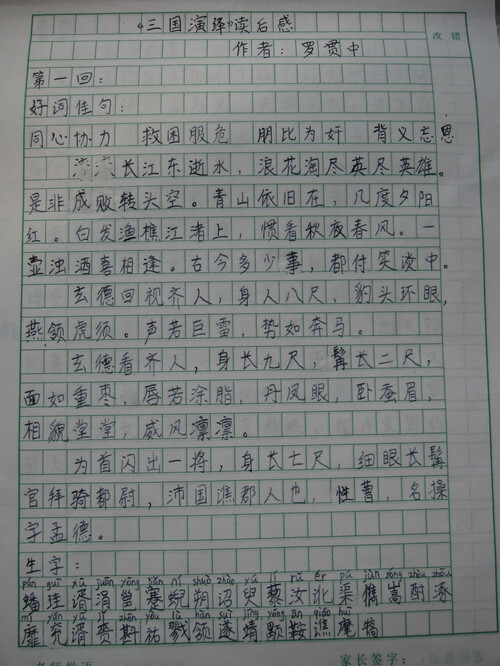 《三国演绎》读后感
改错
作者：罗贯中
第一回：
好词佳句：
同心协力 救困服危 朋比为奸 背义忘恩
滚滚长江东逝水，浪花淘尽英尽英雄。
是非成败转头空。青山依旧在，几度夕阳
红。白发渔樵江渚上，惯看秋夜春风。一
壶浊酒喜相逢。古今多少事，都付笑谈中。
玄德回视齐人，身人八尺，豹头环眼，
燕领虎须。声若巨雷，势如奔马。
玄德看齐人，身长九尺，髯长二尺，
面如重枣，唇若涂脂，丹凤眼，卧蚕眉，
相貌堂堂，威风凛凛。
为首闪出一将，身长七尺，细眼长髯
官拜骑都尉，沛国谯郡人也，性曹，名操
字孟德。
生字：
蟠 涓 邕 蹇 蜺 朔 诏 藜 汝 嵩 酎 涿
靡 兖 贲 斟 祐 戮 领 遂 靖 颙 鞍 谯 麾
家长签字：